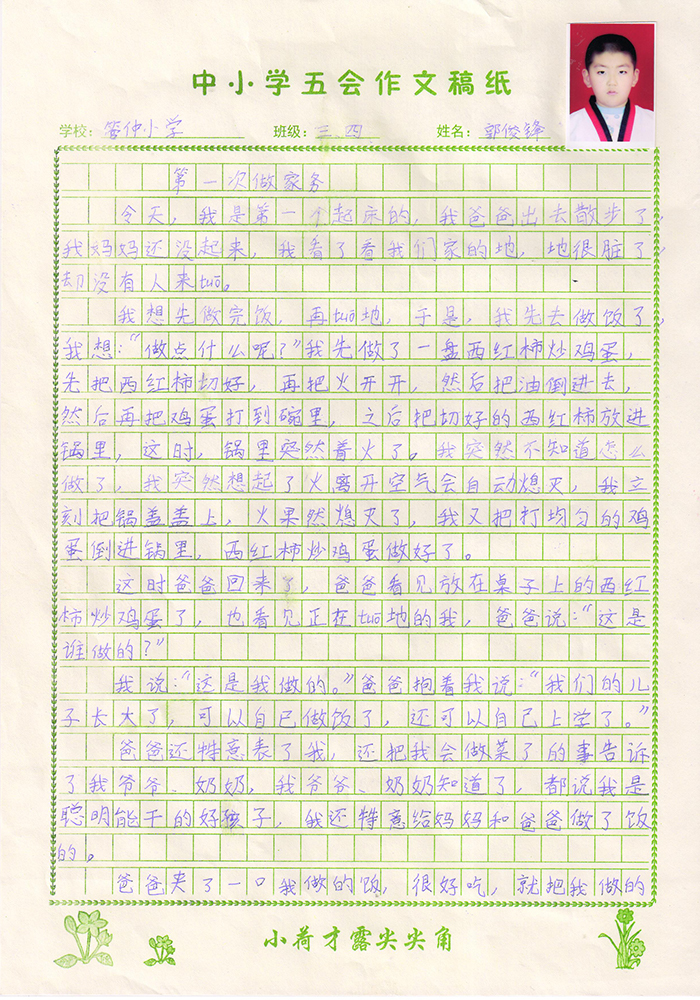 中小学五会作文稿纸
学校：管仲小学 班级：三、四 姓名：郭俊锋
第一次做家务
今天，我是第一个起床的，我爸爸出去散步了，
我妈妈还没起来，我看了看我们家的地，地很脏了，
却没有人来tuō。
我想先做完饭，再tuō地，于是，我先去做饭了，
我想：“做点什么呢？”我先做了一盘西红柿炒鸡蛋，
先把西红柿切好，再把火开开，然后把油倒进去，
然后再把鸡蛋打到碗里，之后把切好的西红柿放进
锅里，这时，锅里突然着火了。我突然不知道怎么
做了，我突然想起了火离开空气会自动熄灭，我立
刻把锅盖盖上，火果然熄灭了，我又把打均匀的鸡
蛋倒进锅里，西红柿炒鸡蛋做好了。
这时爸爸回来了，爸爸看见放在桌子上的西红
柿炒鸡蛋了，也看见正在tuō地的我，爸爸说：“这是
谁做的？”
我说：“这是我做的。”爸爸抱着我说：“我们的儿
子长大了，可以自己做饭了，还可以自己上学了。”
爸爸还特意表了我，还把我会做菜了的事告诉
了我爷爷、奶奶，我爷爷、奶奶知道了，都说我是
聪明能干的好孩子，我还特意给妈妈和爸爸做了饭
的。
爸爸夹了一口我做的饭，很好吃，就把我做的
小荷才露尖尖角